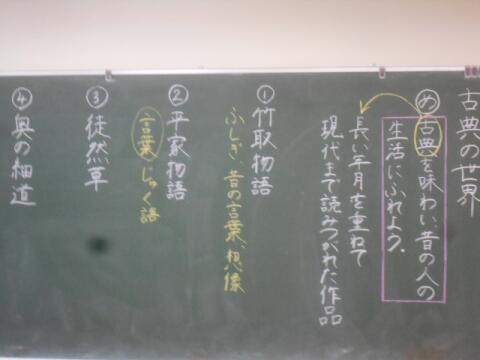 古典の世界
め 古典を味わい、昔の人の
生活にふれよう。
長い年月を重ねて
現代まで読みつがれた作品
① 竹取物語
ふしぎ、昔の言葉、想像
② 平家物語
言葉 じゅく語
③ 徒然草
④ 奥の細道